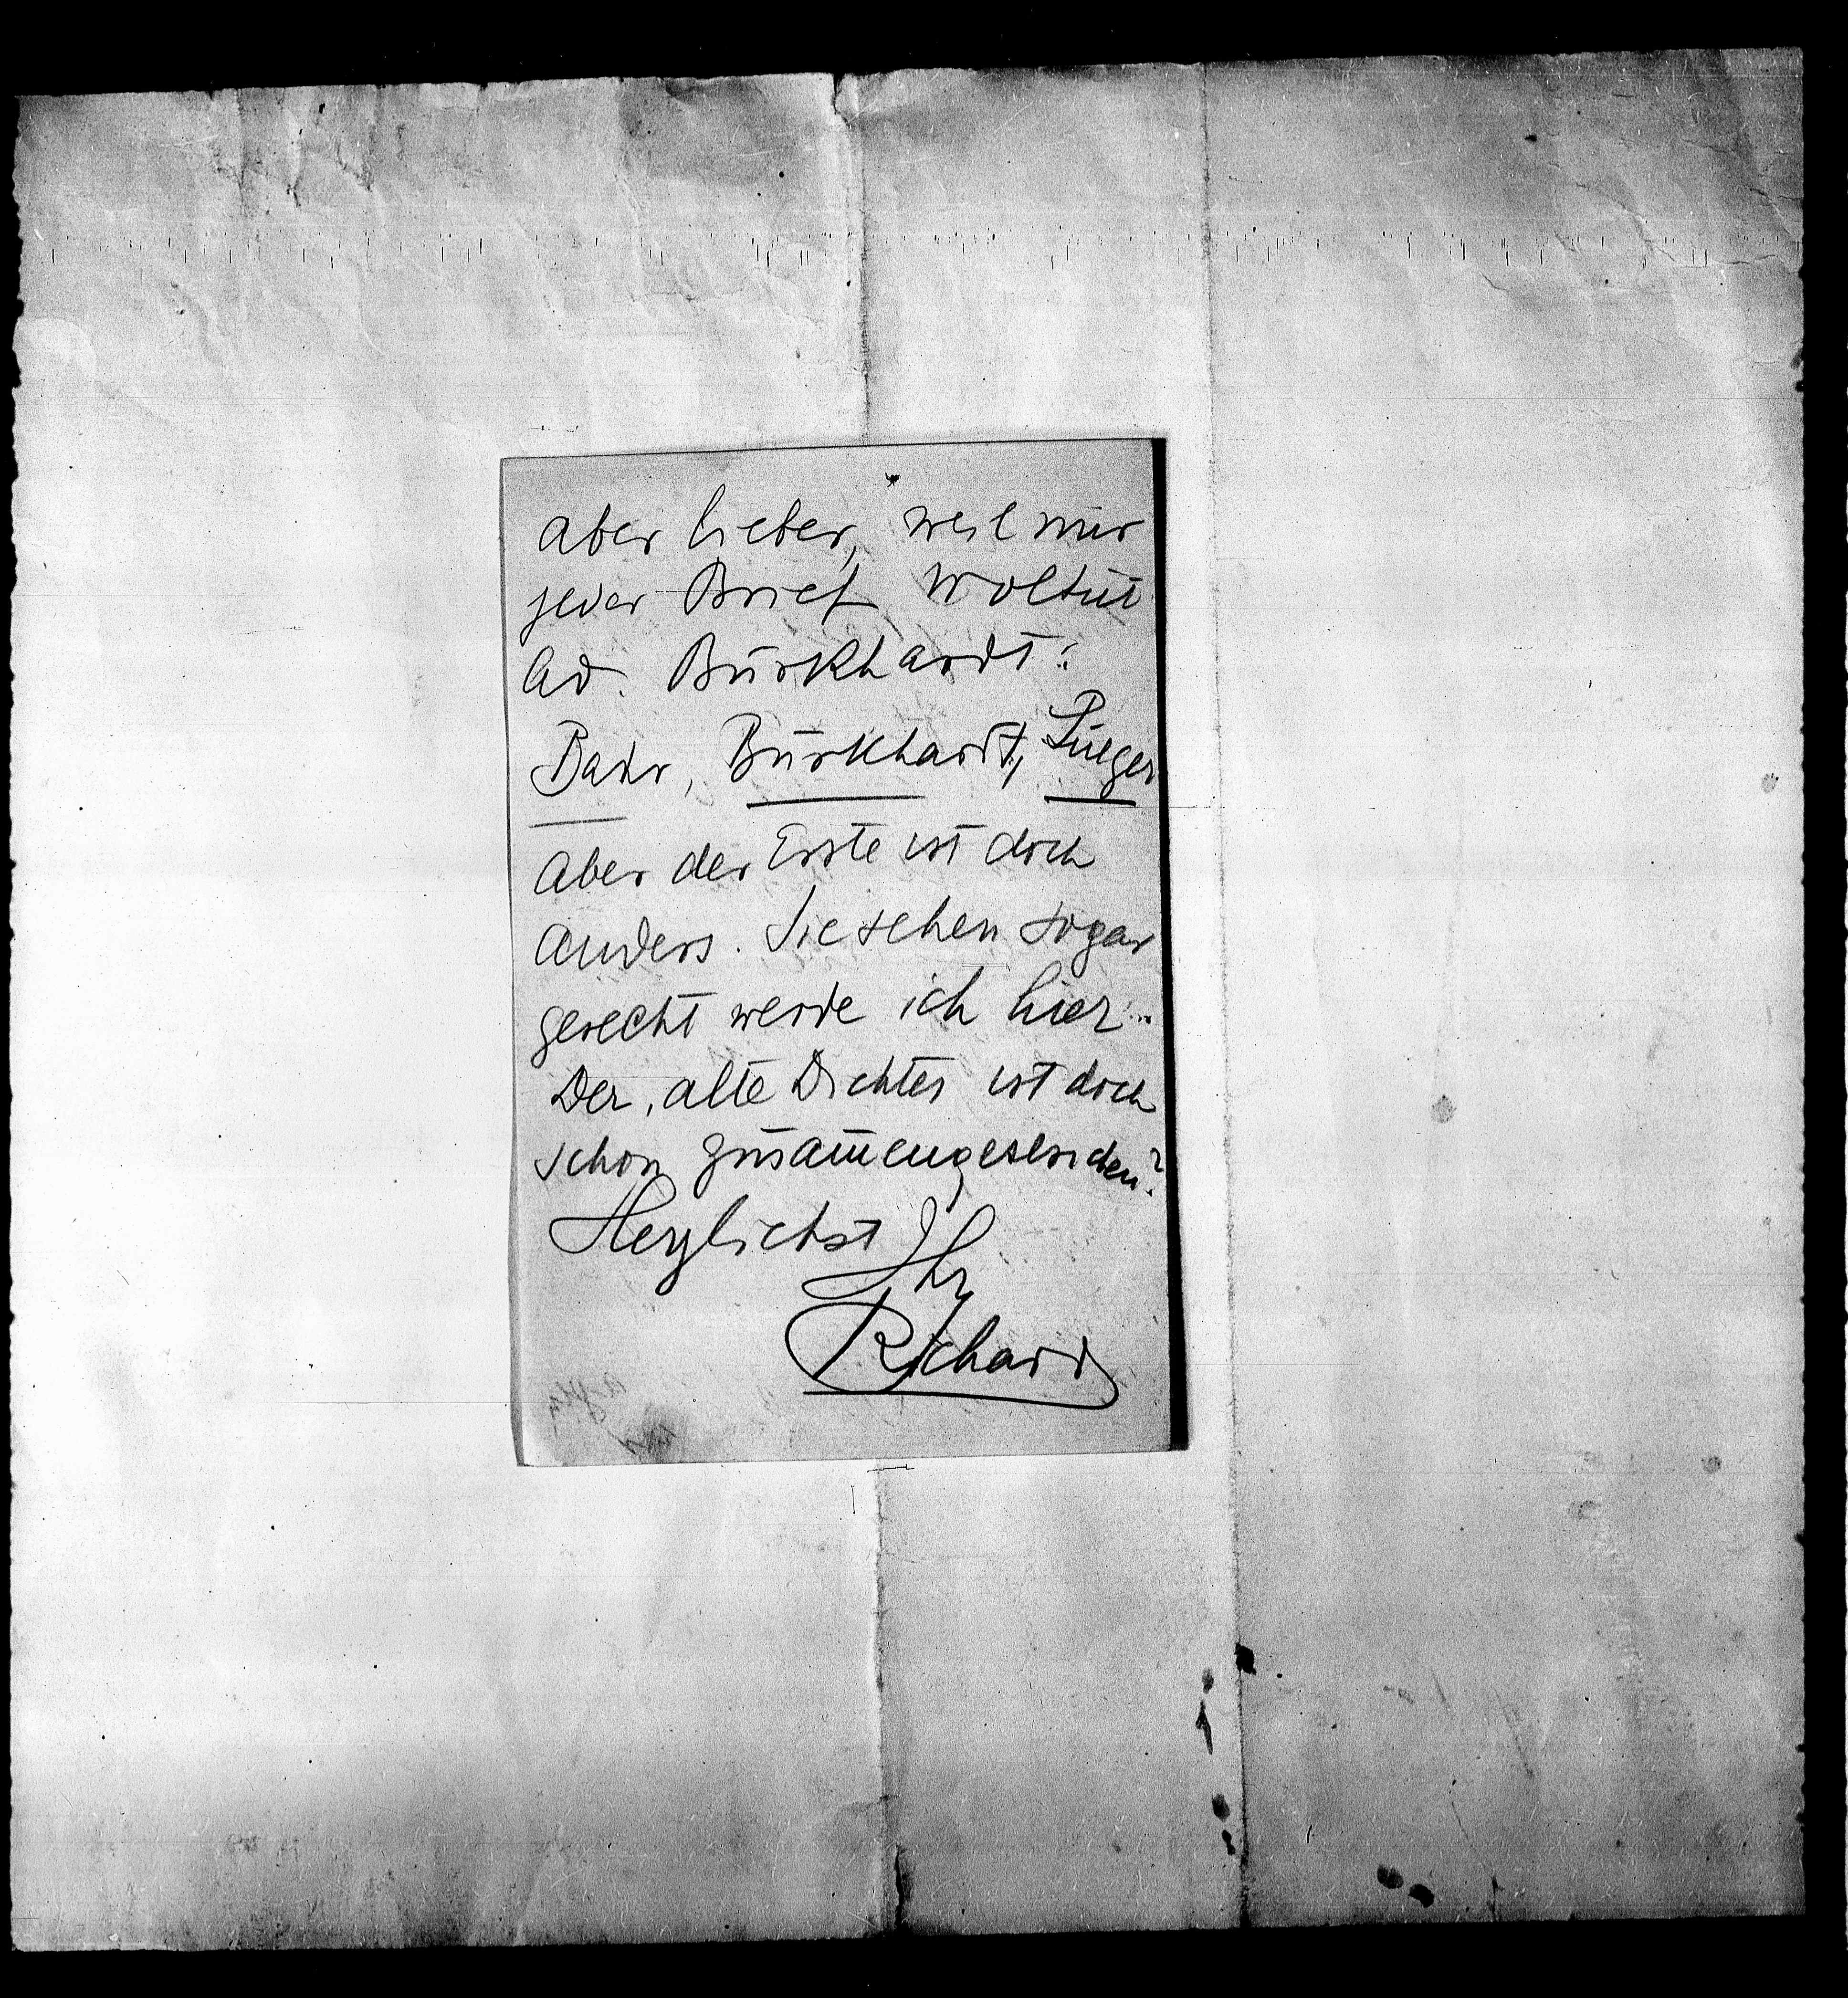 aber lieber, weil mir
jeder Brief woltut
Ad. Burkhardt:
Bahr, Burkhardt, Lueger
aber der Erste ist doch
anders. Sie sehen sogar
gerecht werde ich hier..
Der alte Dichter ist doch
schon zusam̄engestrichen?
Herzlichst Ihr
Richard